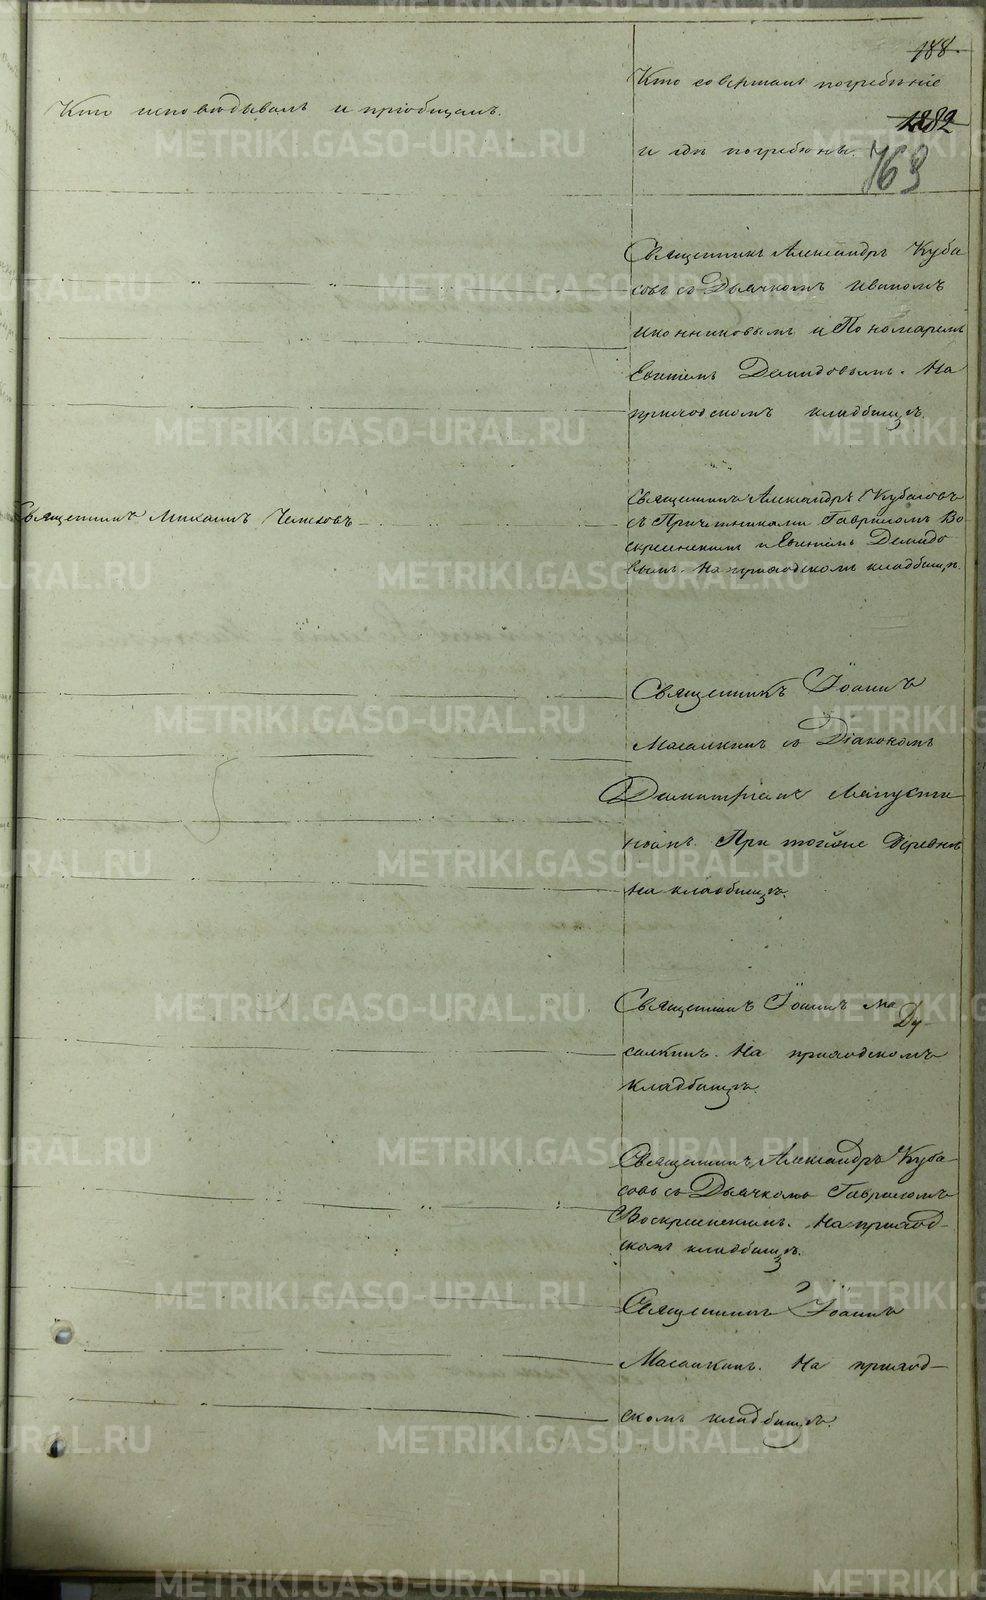 188.
Кто исповѣдывалъ и пріобщалъ.
Кто совершалъ погребеніе
1282
и гдѣ погребены.
763
Священникъ Александръ Куба
совъ съ Дьячкомъ Иваномъ
Иконниковымъ и Пономаремъ
Евгеніемъ Демидовымъ. На
приходскомъ кладбищѣ.
Священникъ Михаилъ
Священникъ Александръ Кубасовъ
съ Причетниками Гавриломъ Во
скресенскимъ и Евгеніемъ Демидо
вымъ. На приходскомъ кладбищѣ.
Священникъ Іоаннъ
Масалкинъ съ Діакономъ
Димитріемъ
При той же деревнѣ
на кладбищѣ.
Священникъ Іоаннъ Ма
салкинъ. На приходскомъ
кладбищѣ.
Священникъ Александръ Куба
совъ съ Дьячкомъ Гавриломъ
Воскресенскимъ. На приход-
скомъ кладбищѣ.
Священникъ Іоаннъ
Масалкинъ. На приход-
скомъ кладбищѣ.
METRIKI.GASO-URAL.RU